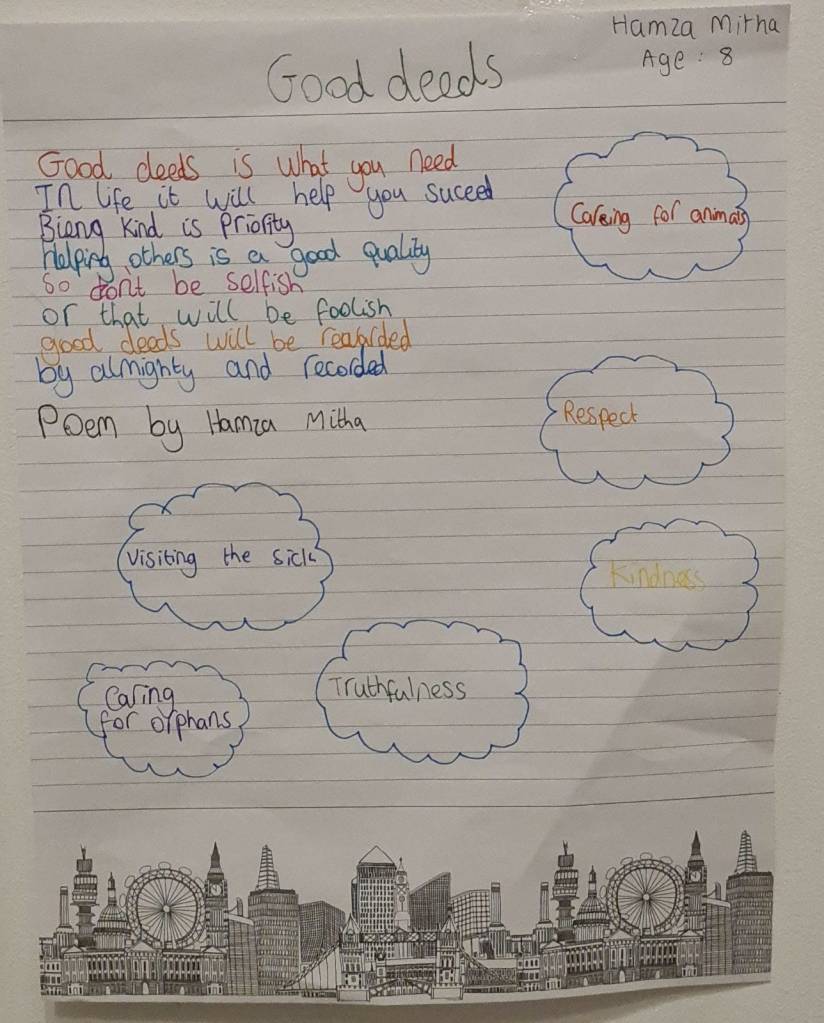 Hamza Mitha
Age : 8
Good deeds
Good deeds is what you need
In life it will help you suceed
Bieng kind is Priority
Helping others is a good quality
So don't be selfish
or that will be foolish
good deeds will be rewarded
by almighty and recorded
Poem by Hamza Mitha
Careing for animals
Respect
Visiting the sick
Kindness
Truthfulness
Caring
for orphans